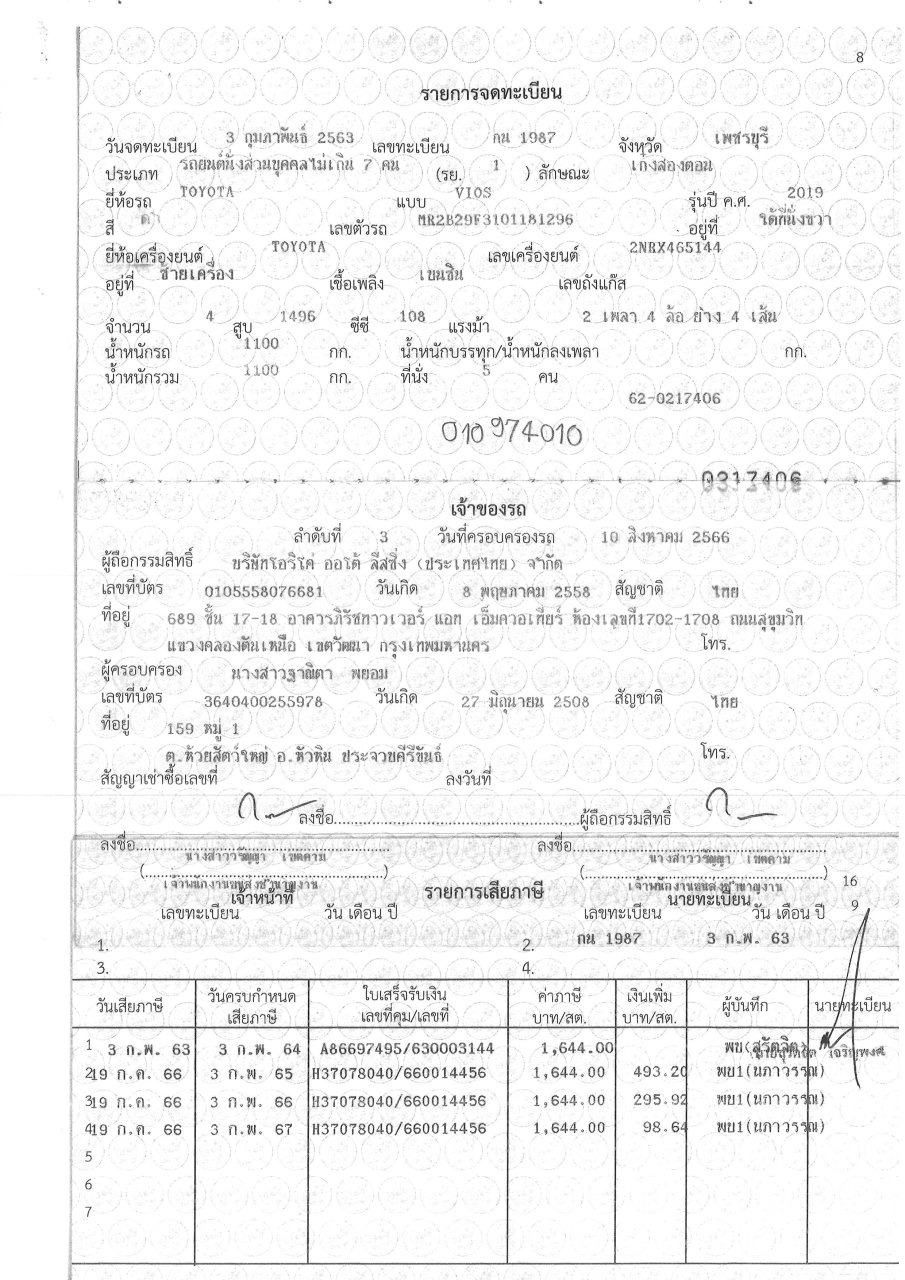 8
รายการจดทะเบียน
วันจดทะเบียน 3 กุมภาพันธ์ 2563 เลขทะเบียน กน 1987 จังหวัด เพชรบุรี
ประเภท รถยนต์นั่งส่วนบุคคลไม่เกิน 7 คน (รย. 1 ) ลักษณะ เก๋งสองตอน
ยี่ห้อรถ TOYOTA แบบ VIOS รุ่นปี ค.ศ. 2019
สี ดำ เลขตัวรถ MR2B29F3101181296 อยู่ที่ ใต้ที่นั่งขวา
ยี่ห้อเครื่องยนต์ TOYOTA เลขเครื่องยนต์ 2NRX465144
อยู่ที่ ซ้ายเครื่อง เชื้อเพลิง เบนซิน เลขถังแก๊ส
จำนวน 4 สูบ 1496 ซีซี 108 แรงม้า 2 เพลา 4 ล้อ ยาง 4 เส้น
น้ำหนักรถ 1100 กก. น้ำหนักบรรทุก/น้ำหนักลงเพลา กก.
น้ำหนักรวม 1100 กก. ที่นั่ง 5 คน
62-0217406
010974010
0317406
เจ้าของรถ
ลำดับที่ 3 วันที่ครอบครองรถ 10 สิงหาคม 2566
ผู้ถือกรรมสิทธิ์ บริษัทโอริโค่ ออโต้ ลีสซิ่ง (ประเทศไทย) จำกัด
เลขที่บัตร 0105558076681 วันเกิด 8 พฤษภาคม 2558 สัญชาติ ไทย
ที่อยู่ 689 ชั้น 17-18 อาคารภิรัชทาวเวอร์ แอท เอ็มควอเทียร์ ห้องเลขที่1702-1708 ถนนสุขุมวิท
แขวงคลองตันเหนือ เขตวัฒนา กรุงเทพมหานคร โทร.
ผู้ครอบครอง นางสาวฐาณิตา พยอม
เลขที่บัตร 3640400255978 วันเกิด 27 มิถุนายน 2508 สัญชาติ ไทย
ที่อยู่ 159 หมู่ 1
ต.ห้วยสัตว์ใหญ่ อ.หัวหิน ประจวบคีรีขันธ์ โทร.
สัญญาเช่าซื้อเลขที่ ลงวันที่
ลงชื่อ..........ผู้ถือกรรมสิทธิ์
ลงชื่อ.......... ลงชื่อ..........
(นางสาววรัญญา เขตคาม) (นางสาววรัญญา เขตคาม) 16
เจ้าพนักงานขนส่งชำนาญงาน เจ้าพนักงานขนส่งชำนาญงาน
เจ้าหน้าที่ รายการเสียภาษี นายทะเบียน
เลขทะเบียน วัน เดือน ปี เลขทะเบียน วัน เดือน ปี 9
1. 2. กน 1987 3 ก.พ. 63
3. 4.
วันเสียภาษี วันครบกำหนดเสียภาษี ใบเสร็จรับเงิน เลขที่คุม/เลขที่ ค่าภาษี บาท/สต. เงินเพิ่ม บาท/สต. ผู้บันทึก นายทะเบียน
1 3 ก.พ. 63 3 ก.พ. 64 A86697495/630003144 1,644.00 พบ(สุรัตจิต)
2 19 ก.ค. 66 3 ก.พ. 65 H37078040/660014456 1,644.00 493.20 พบ1(นภาวรรณ)
3 19 ก.ค. 66 3 ก.พ. 66 H37078040/660014456 1,644.00 295.92 พบ1(นภาวรรณ)
4 19 ก.ค. 66 3 ก.พ. 67 H37078040/660014456 1,644.00 98.64 พบ1(นภาวรรณ)
5
6
7